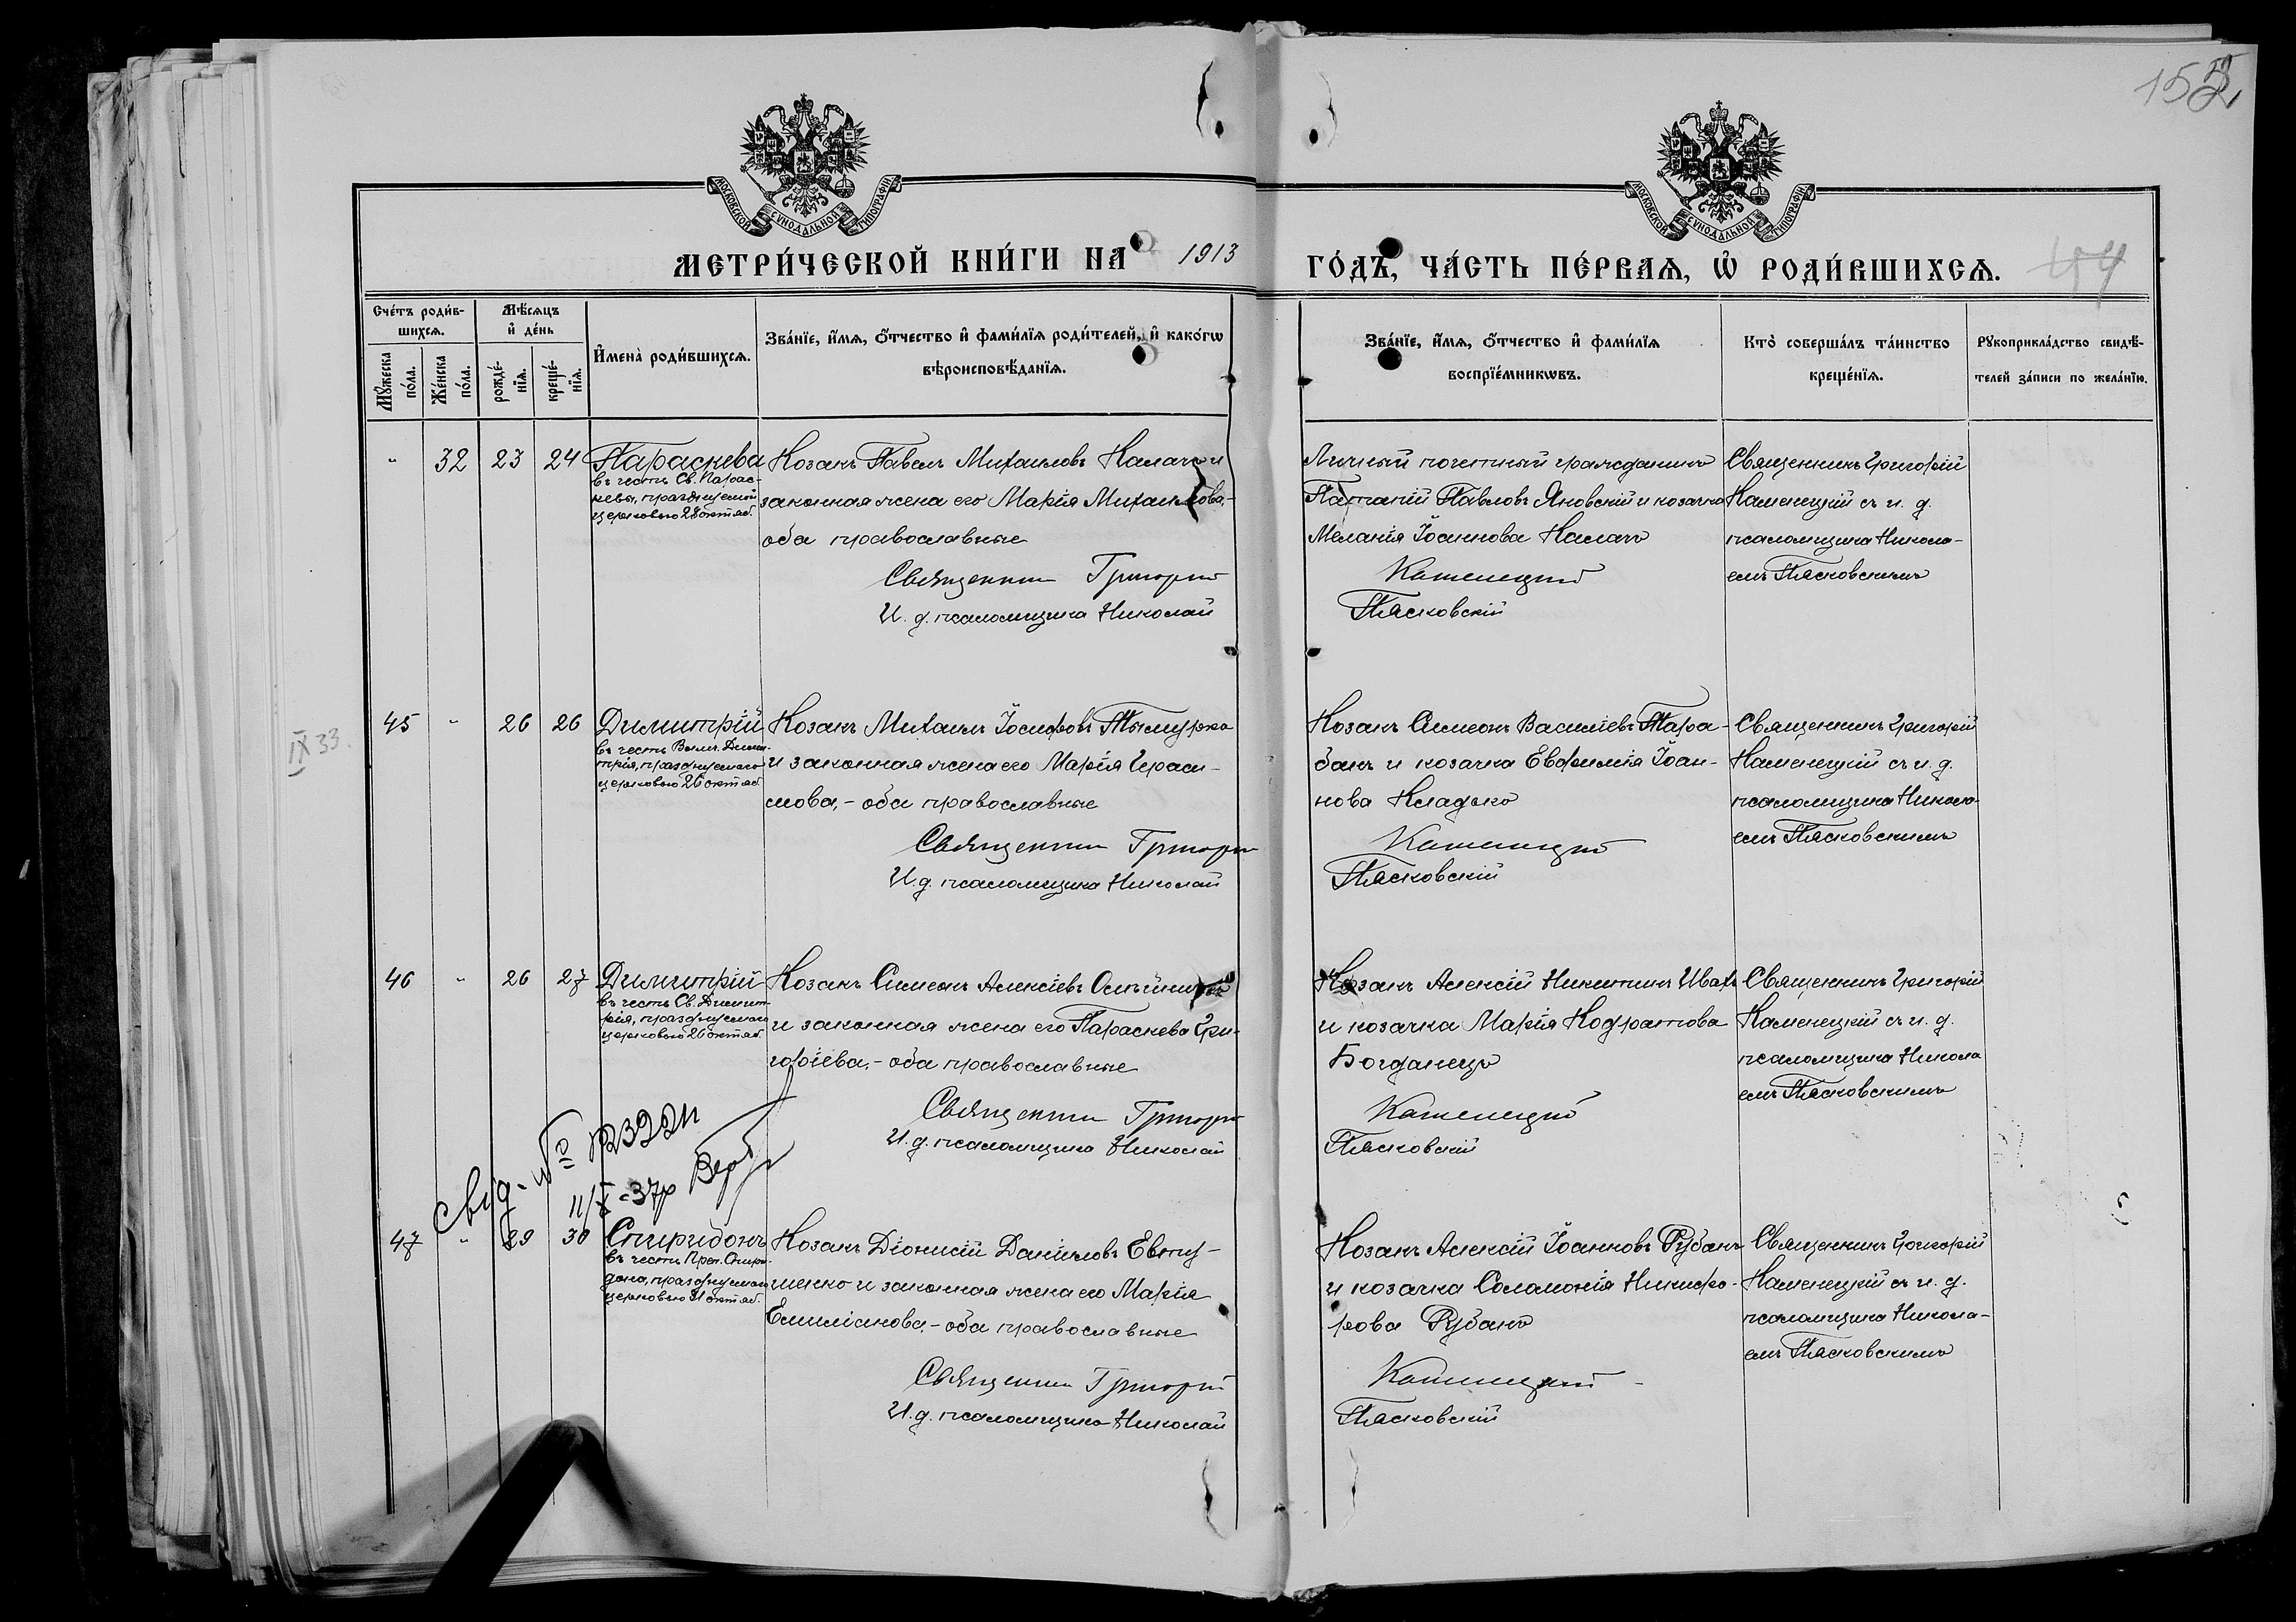 152
МОСКОВСКОЙ СѴНОДАЛЬНОЙ ТИПОГРАФІИ
МОСКОВСКОЙ СѴНОДАЛЬНОЙ ТИПОГРАФІИ
МЕТРИ́ЧЕСКОЙ КНИ́ГИ НА 1913 ГО́ДЪ, ЧА́СТЬ ПЕ́РВАѦ, Ѡ РОДИ́ВШИХСѦ.
Сче́тъ роди́в-
шихсѧ.
Мѹ́жеска по́ла.
Же́нска по́ла.
Мѣ́сѧцъ
и де́нь
рожде́-
нїѧ.
креще́-
нїѧ.
И҆мена̀ роди́вшихсѧ.
Зва́нїе, и҆́мѧ, ѻ҆́тчество и҆ фами́лїѧ роди́телей, и҆ како́гѡ
вѣроисповѣ́данїѧ.
Зва́нїе, и҆́мѧ, ѻ҆́тчество и҆ фами́лїѧ
воспрїе́мникѡвъ.
Кто̀ соверша́лъ та́инство
креще́нїѧ.
Рѹкоприкла́дство свидѣ́-
телей за́писи по жела́нїю.
" 32 23 24 Параскева
въ честь Св. Парас-
кевы, празднуемой
церковью 28 октяб.
Козакъ Павелъ Михаиловъ Калачъ и
законная жена его Марія Михаилова,-
оба православные
Священник Григорий
И. д. псаломщика Николай
Личный почетный гражданинъ
Павловъ Яновскій и козачка
Меланія Іоаннова Калачъ
Каменецкий
Пясковскій
Священникъ Григорій
Каменецкій съ и. д.
псаломщика Никола-
емъ Пясковскимъ
IX 33.
45 " 26 26 Димитрій
въ честь Велм. Дими-
трія, празднуемаго
церковью 26 октяб.
Козакъ Михаилъ Іосифовъ
и законная жена его Марія Гераси-
мова,- оба православные
Священник Григорий
И. д. псаломщика Николай
Козакъ Симеонъ Василіевъ Тара-
банъ и козачка Евфимія Іоан-
нова Кладько
Каменецкий
Пясковскій
Священникъ Григорій
Каменецкій съ и. д.
псаломщика Никола-
емъ Пясковскимъ
46 " 26 27 Димитрій
въ честь Св. Димит-
рія, празднуемаго
церковью 26 октяб.
Козакъ Симеонъ Алексіевъ Олѣйникъ
и законная жена его Параскева Гри-
горіева,- оба православные
Священник Григорий
И. д. псаломщика Николай
Козакъ Алексій Никитинъ Ивахъ
и козачка Марія Кодратова
Богданецъ
Каменецкий
Пясковскій
Священникъ Григорій
Каменецкій съ и. д.
псаломщика Никола
емъ Пясковскимъ
свід-
11/X-37р
47 " 29 30 Спиридонъ
въ честь Преп. Спири-
дона, празднуемаго
церковью 31 октяб.
Козакъ Діонисій Даніиловъ Евту-
шенко и законная жена его Марія
Емиліанова,- оба православные
Священник Григорий
И. д. псаломщика Николай
Козакъ Алексій Іоанновъ Рубанъ
и козачка Соломонія Никифо-
рова Рубанъ
Каменецкий
Пясковскій
Священникъ Григорій
Каменецкій съ и. д.
псаломщика Никола-
емъ Пясковскимъ